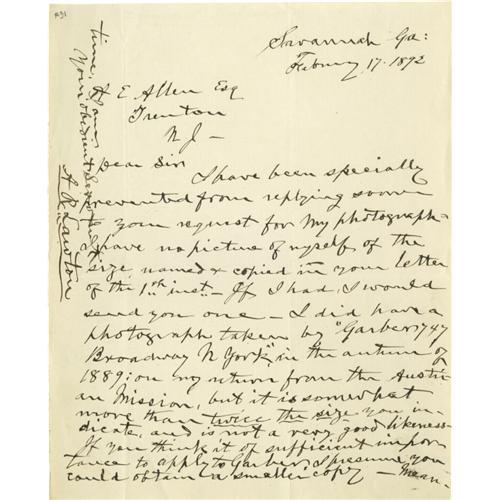 Savannah Ga:
Febuary 17. 1892
A E Allen Esq
Trenton
N J —
Dear Sir
I have been specially
prevented from replying sooner
to your request for my photograph—
I have no picture of myself of the
size, named & copied in your letter
of the 1st inst — If I had, I would
send you one — I did have a
photograph taken by "Garber, 747
Broadway N York", in the autumn of
1889: on my return from the Austri
an Mission, but it is somewhat
more than twice the size you in-
dicate, and is not a very good likeness—
If you think it of sufficient impor
tance to apply to Garber, I presume you
could obtain a smaller copy — Mean-
time, I am
Your obedient Servant
A R Lawton